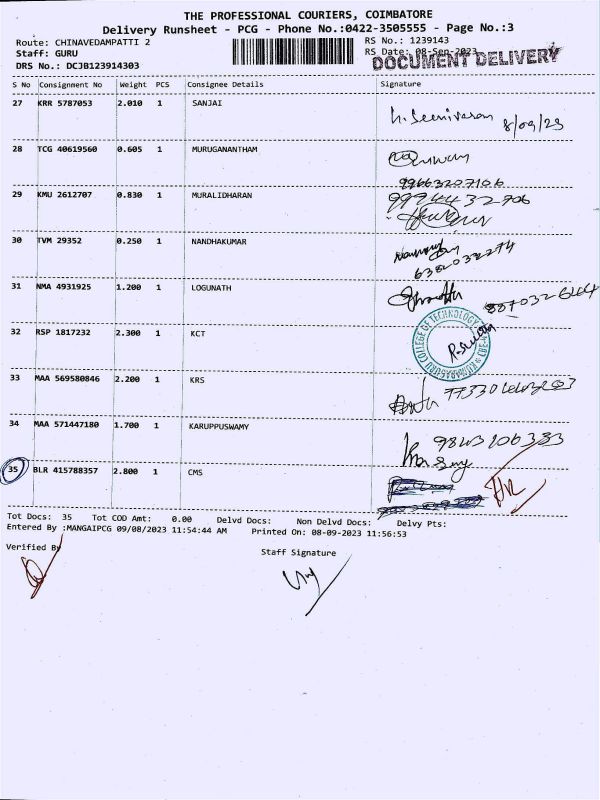 THE PROFESSIONAL COURIERS, COIMBATORE
Delivery Runsheet - PCG - Phone No.:0422-3505555 - Page No.:3
Route: CHINAVEDAMPATTI 2
RS No.: 1239143
Staff: GURU
RS Date: 08-Sep-2023
DOCUMENT DELIVERY
DRS No.: DCJB123914303
S No Consignment No Weight PCS Consignee Details Signature
27 KRR 5787053 2.010 1 SANJAI
8/09/23
28 TCG 40619560 0.605 1 MURUGANANTHAM
99663207106
29 KMU 2612707 0.830 1 MURALIDHARAN
9994432706
30 TVM 29352 0.250 1 NANDHAKUMAR
31 NMA 4931925 1.200 1 LOGUNATH
32 RSP 1817232 2.300 1 KCT
COLLEGE OF TECHNOLOGY
33 MAA 569580846 2.200 1 KRS
34 MAA 571447180 1.700 1 KARUPPUSWAMY
9843106333
35 BLR 415788357 2.800 1 CMS
Tot Docs: 35 Tot COD Amt: 0.00 Delvd Docs: Non Delvd Docs: Delvy Pts:
Entered By :MANGAIPCG 09/08/2023 11:54:44 AM Printed On: 08-09-2023 11:56:53
Verified By
Staff Signature